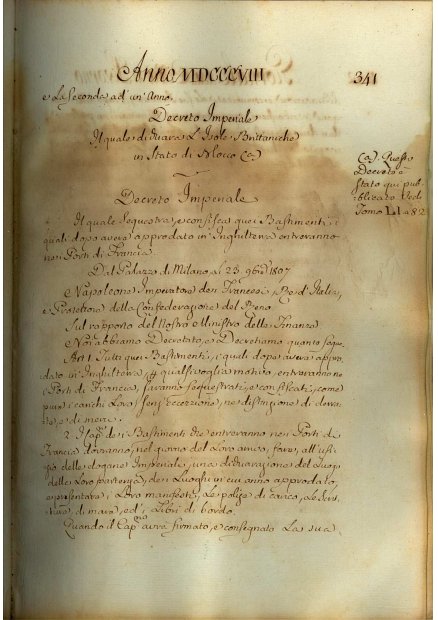 Anno MDCCCVIII
341
e La Seconda ad un' Anno.
Decreto Imperiale
Il quale dichiara L'Isole Brittaniche
in Stato di Blocco (a)
(a). Questo
Decreto è
stato qui pub-
blicato Vedi
Tomo LI a 82
Decreto Imperiale
Il quale Sequestra, e confisca quei Bastimenti, i
quali dopo avere approdato in Inghilterra entreranno
ne' Porti di Francia.
Dal Palazzo di Milano li 23 9bre 1807
Napoleone Imperatore dei Francesi, Re d'Italia,
e Protettore della Confederazione del Reno.
Sul rapporto del Nostro Ministro delle Finanze
Noi abbiamo Decretato, e Decretiamo quanto segue
Art. 1. Tutti quei Bastimenti, i quali dopo avere appro-
dato in Inghilterra, per qualsivoglia motivo, entreranno ne
i Porti di Francia, saranno sequestrati, e confiscati, come
pure i carichi Loro, senz'eccezzione, ne distinzione di derra-
te, e di merci.
2. I Cap. dei Bastimenti che entreranno nei Porti di
Francia dovranno, nel giorno del Loro arrivo, fare, all'uffi-
zio delle dogane Imperiale, una dichiarazione del Luogo
della Loro partenza, dei Luoghi in cui anno approdato,
e presentare i Loro manifesti, Le polize di carico, Le
di mare, ed i Libri di bordo.
Quando il Cap. avrà firmato, e consegnato La sua